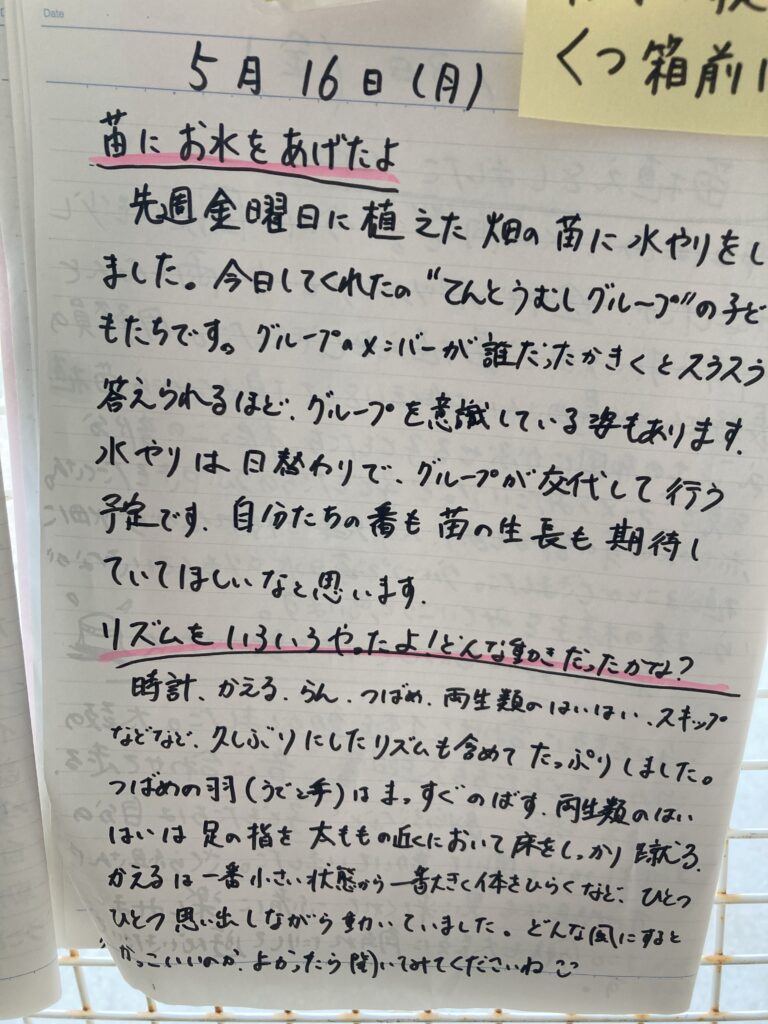 Date
くつ箱前に
5月16日(月)
苗にお水をあげたよ
先週金曜日に植えた畑の苗に水やりをし
ました。今日してくれたの"てんとうむしグループ"の子ど
もたちです。グループのメンバーが誰だったかきくとスラスラ
答えられるほど、グループを意識している姿もあります.
水やりは日替わりで、グループが交代して行う
予定です.自分たちの番も苗の生長も期待し
ていてほしいなと思います.
リズムをいろいろやったよ!どんな動きだったかな?
時計、かえる、らん、つばめ、両生類のはいはい、スキップ
などなど、久しぶりにしたリズムも含めてたっぷりしました。
つばめの羽(うでと手)はまっすぐのばす、両生類のはい
はいは足の指を太ももの近くにおいて床をしっかり蹴る.
かえるは一番小さい状態から一番大きく体をひらくなど、ひとつ
ひとつ思い出しながら動いていました。どんな風にすると
かっこいいのか、よかったら聞いてみてくださいね